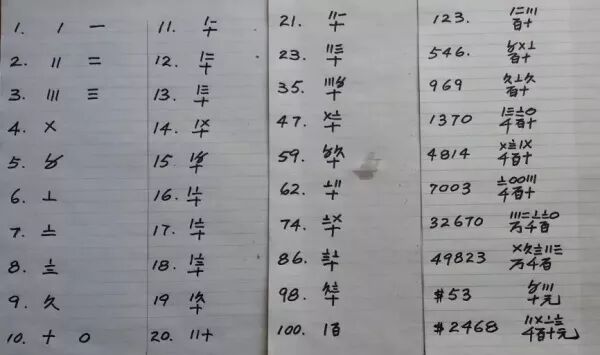 1. 〡 一
2. 〢 二
3. 〣 三
4. 〤
5. 〥
6. 〦
7. 〧
8. 〨
9. 〩
10. 十 0
11. 〡一
十
12. 〡二
十
13. 〡三
十
14. 〡〤
十
15 〡〥
十
16. 〡〦
十
17. 〡〧
十
18. 〡〨
十
19 〡〩
十
20. 〢十
21. 〢一
十
23. 〢三
十
35. 〣〥
十
47. 〤〧
十
59. 〥〩
十
62. 〦〢
十
74. 〧〤
十
86. 〨〦
十
98. 〩〨
十
100. 〡百
123. 〡二〣
百十
546. 〥〤〦
百十
969 〩〦〩
百十
1370 〡三〧0
千百十
4814 〤〨〡〤
千百十
7003 〧00〣
千百十
32670 〣二〦〧0
万千百
49823 〤〩〨〢三
万千百
$53 〥〣
十元
$2468 〢〤〦〨
千百十元